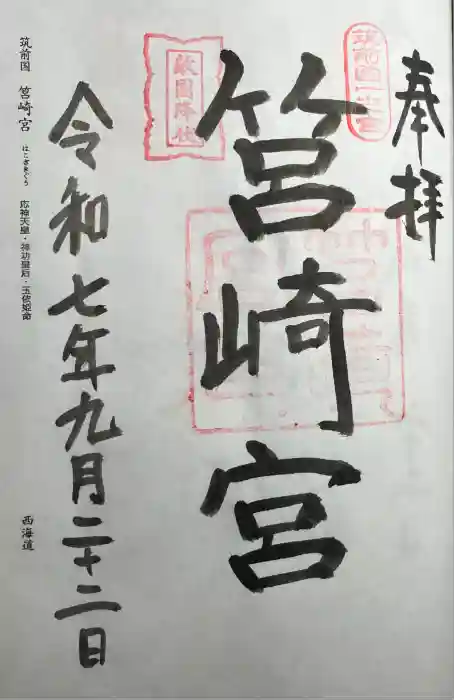 奉拝
筑前国一之宮
筥崎宮
敵国降伏
令和七年九月二十二日
筑前国 筥崎宮 はこざきぐう 応神天皇・神功皇后・玉依姫命
西海道